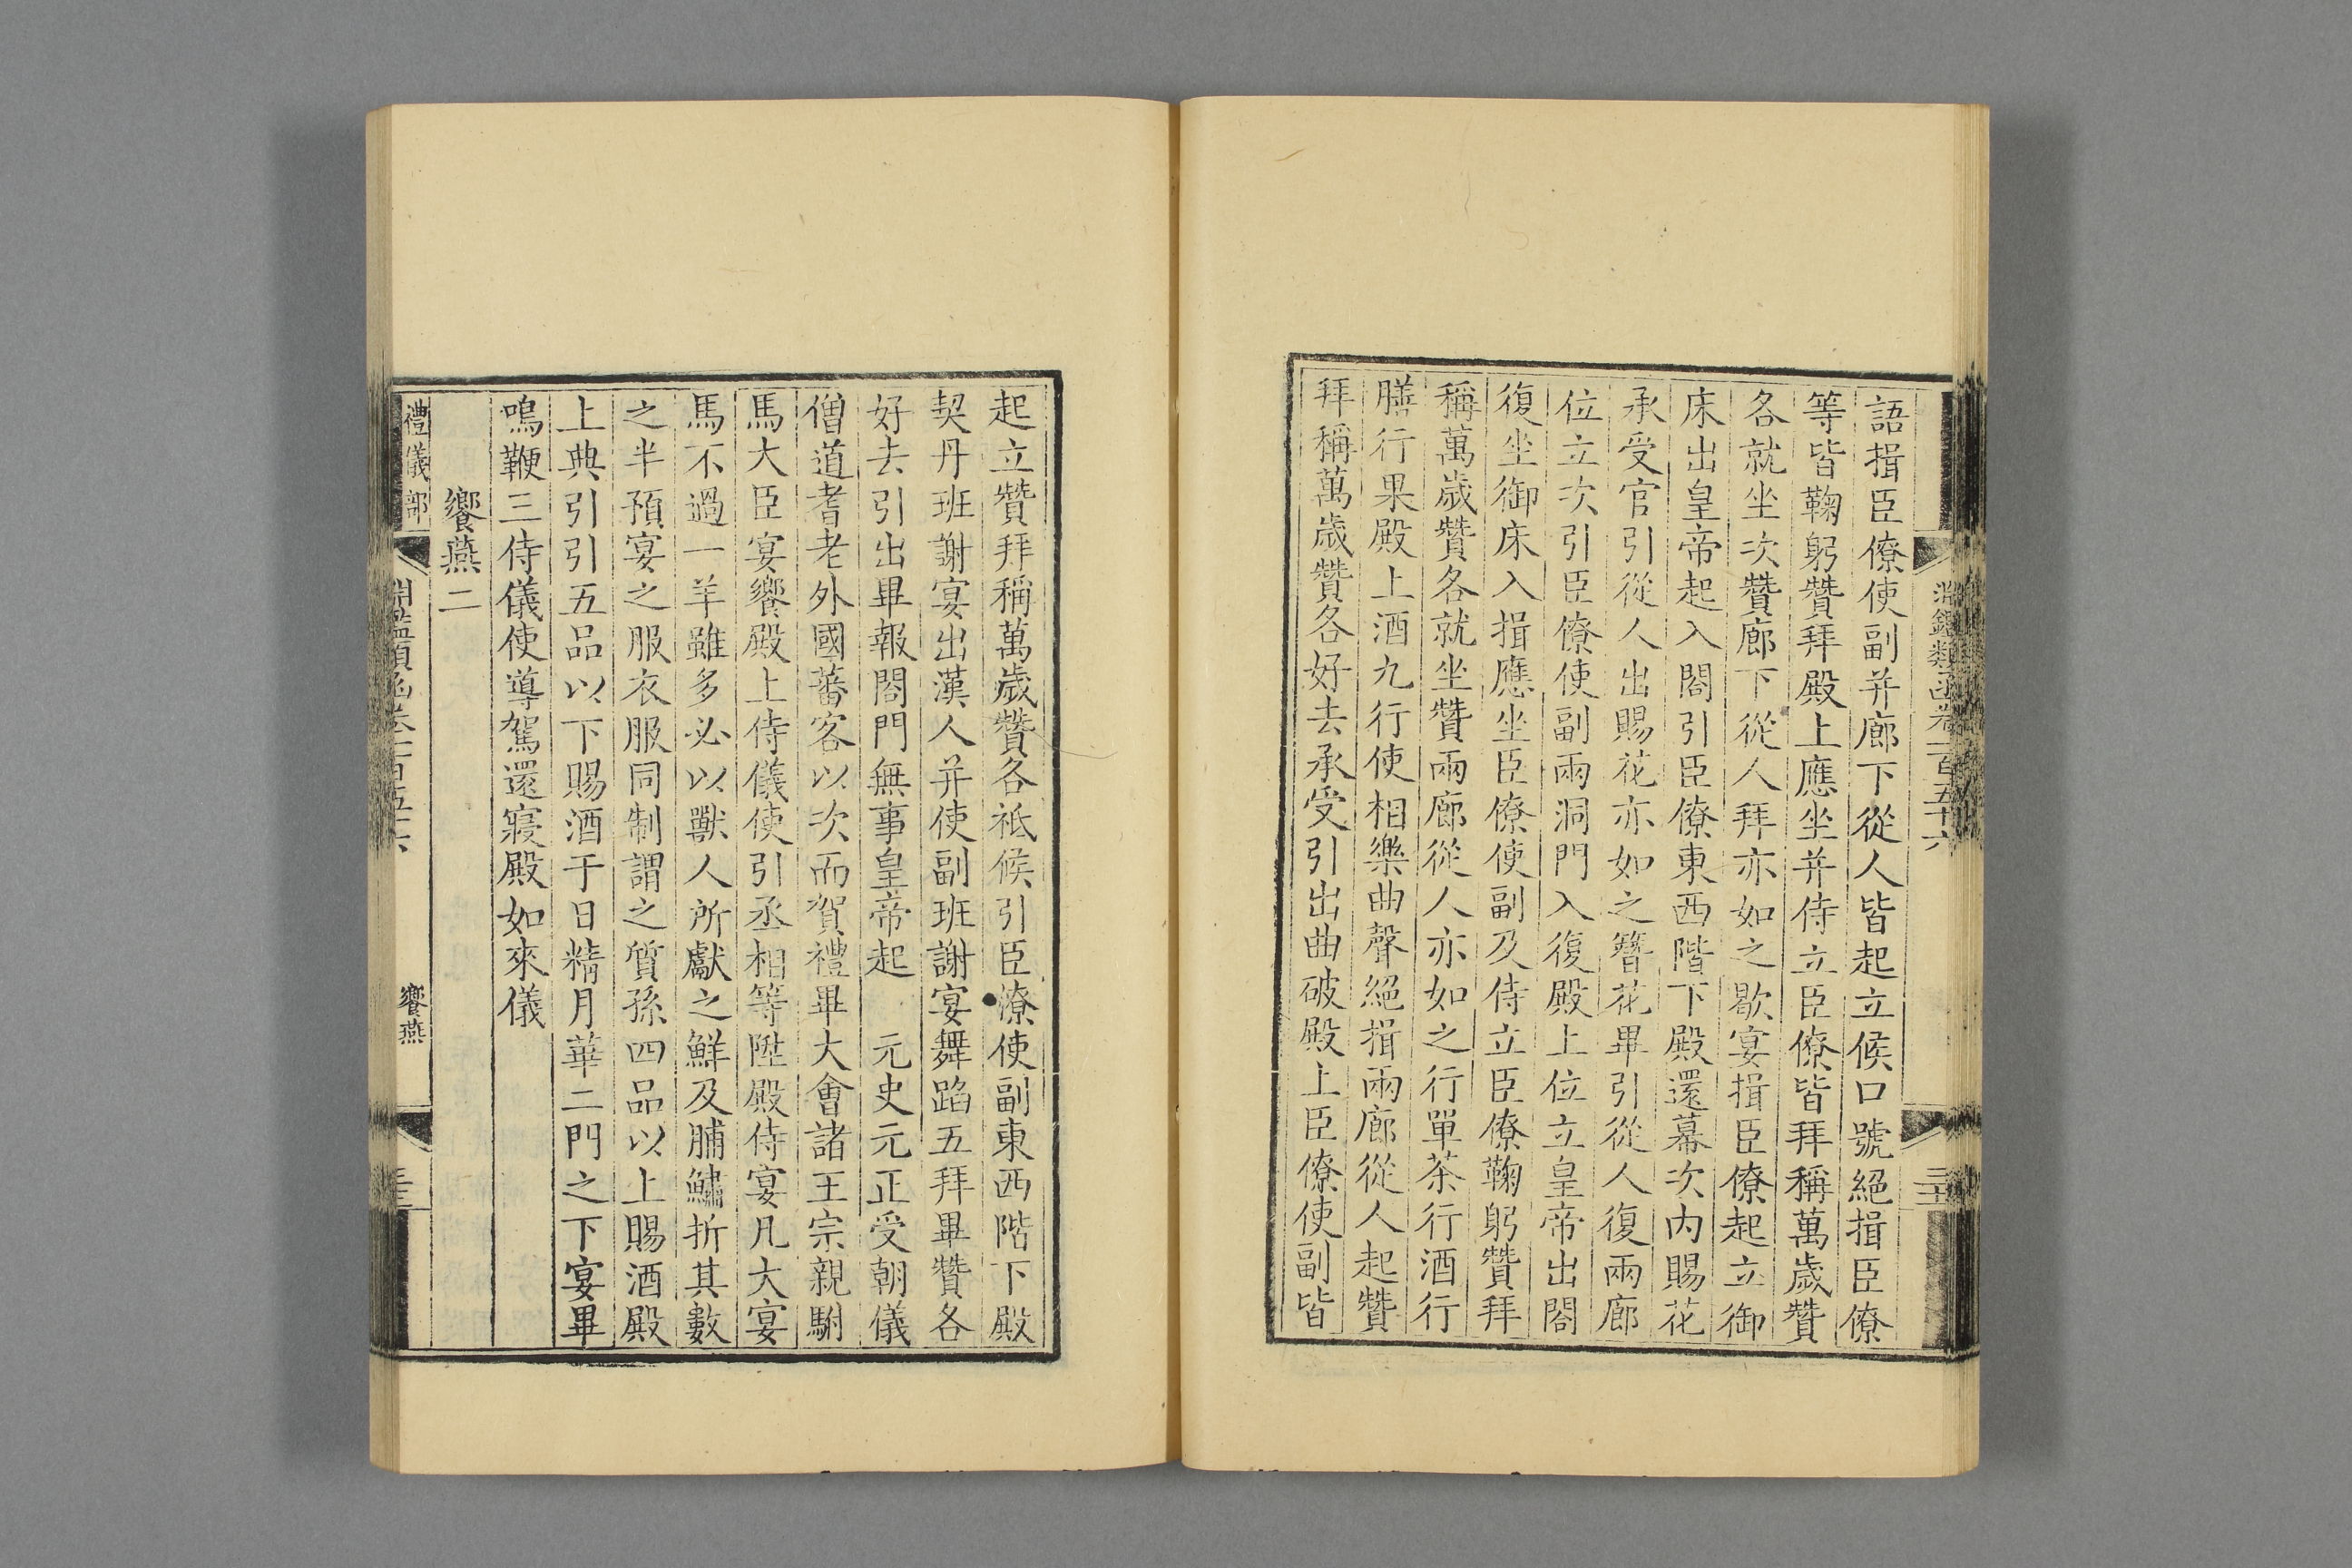 語揖臣僚使副并廊下從人皆起立候口號絕揖臣僚
等皆鞠躬贊拜殿上應坐并侍立臣僚皆拜稱萬歲贊
各就坐次贊廊下從人拜亦如之歇宴揖臣僚起立御
床出皇帝起入閤引臣僚東西階下殿還幕次內賜花
承受官引從人出賜花亦如之簪花畢引從人復兩廊
位立次引臣僚使副兩洞門入復殿上位立皇帝出閤
復坐御床入揖應坐臣僚使副及侍立臣僚鞠躬贊拜
稱萬歲贊各就坐贊兩廊從人亦如之行單茶行酒行
膳行果殿上酒九行使相樂曲聲絕揖兩廊從人起贊
拜稱萬歲贊各好去承受引出曲破殿上臣僚使副皆
起立贊拜稱萬歲贊各祗候引臣潦使副東西階下殿
契丹班謝宴出漢人并使副班謝宴舞蹈五拜畢贊各
好去引出畢報閤門無事皇帝起　元史元正受朝儀
僧道耆老外國蕃客以次而賀禮畢大會諸王宗親駙
馬大臣宴饗殿上侍儀使引丞相等陞殿侍宴凡大宴
馬不過一羊雖多必以獸人所獻之鮮及脯鱐折其數
之半預宴之服衣服同制謂之質孫四品以上賜酒殿
上典引引五品以下賜酒于日精月華二門之下宴畢
鳴鞭三侍儀使導駕還寢殿如來儀
饗燕二
禮儀部
饗燕